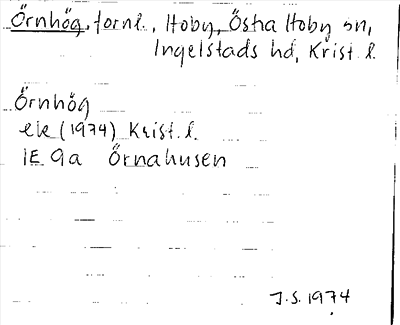 Örnhög, fornl., Hoby, Östra Hoby sn,
Ingelstads hd, Krist. l.
Örnhög
ek (1974) Krist. l.
1E 9a Örnahusen
J.S. 1974